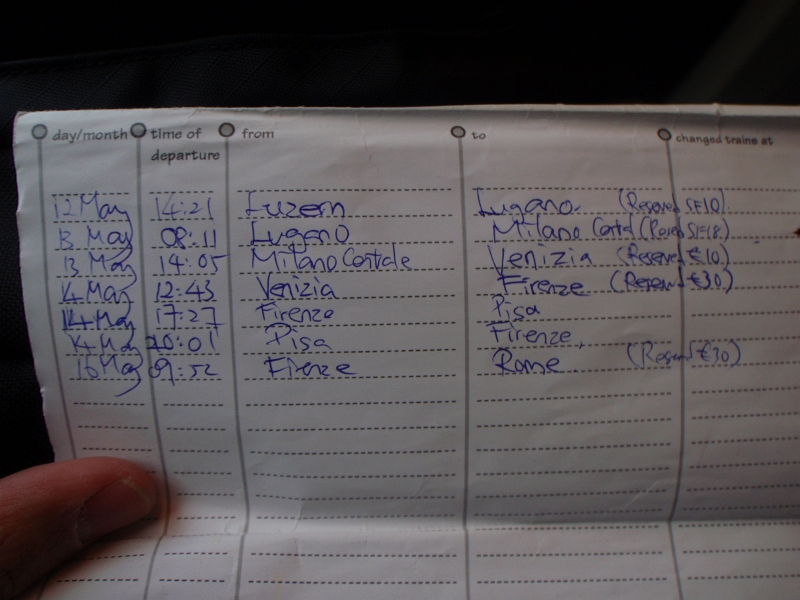 day/month time of departure from to changed trains at
12 May 14:21 Luzern Lugano. (Reserved SF10)
13 May 08:11 Lugano Milano (Reserved SF18)
13 May 14:05 Milano Centrale Venizia (Reserved €10)
14 May 12:43 Venizia Firenze (Reserved €30)
14 May 17:27 Firenze Pisa
14 May 20:01 Pisa Firenze,
16 May 09:52 Firenze Rome (Reserved €30)